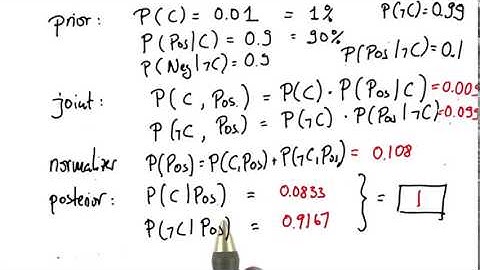 prior: P(C) = 0.01 = 1% P(¬C)=0.99
P(Pos|C) = 0.9 = 90%
P(Neg|¬C) = 0.9 P(Pos|¬C)=0.1
joint: P(C, Pos) = P(C) · P(Pos|C) =0.009
P(¬C, Pos) = P(¬C) · P(Pos|¬C) =0.099
normalizer P(Pos) = P(C,Pos) + P(¬C,Pos) = 0.108
posterior: P(C|Pos) = 0.0833
P(¬C|Pos) = 0.9167 = 1